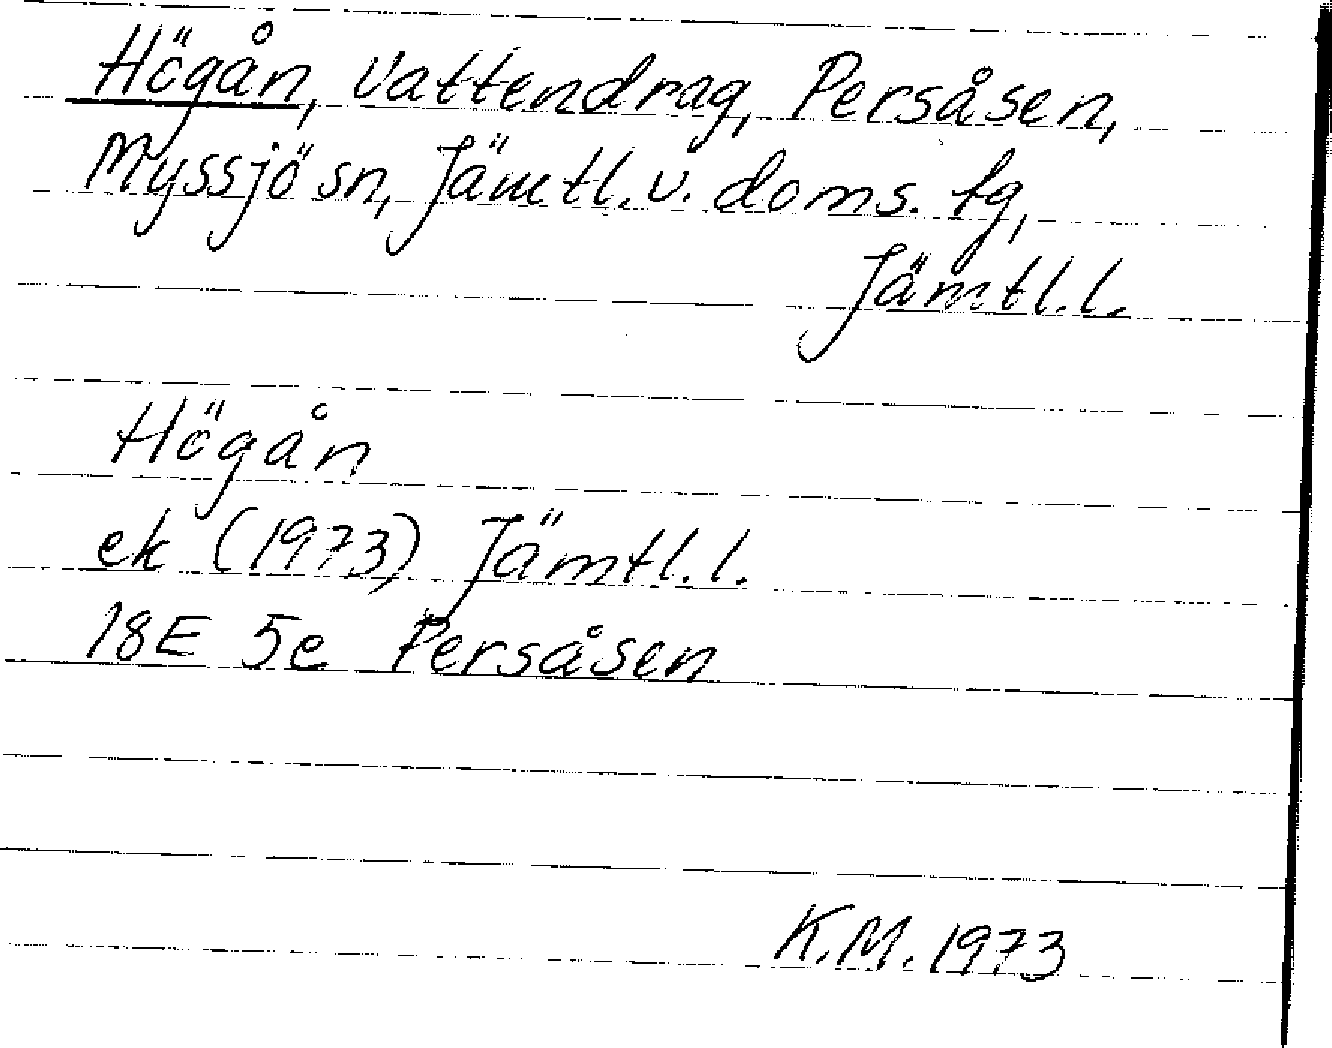 Högån, vattendrag, Persåsen,
Myssjö sn, Jämtl. v. doms. tg,
Jämtl. l.
Högån
ek (1973) Jämtl. l.
18E 5e Persåsen
K.M. 1973